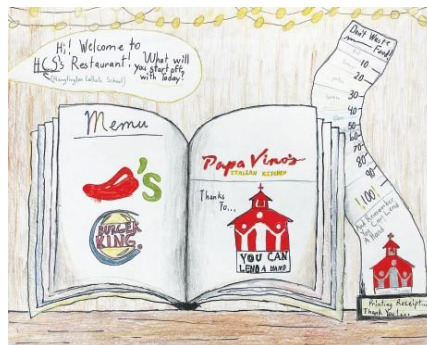 Hi! Welcome to
HCS's Restaurant! What will
you start off
with Today?
(Huntington Catholic School)
Menu
's
BURGER
KING.
Papa Vino's
ITALIAN KITCHEN
Thanks
To...
YOU CAN
LEND A HAND
Don't Waste
Food!
10
20
30
40
50
60
70
80
90
100
And Remember
You Can Lend
A Hand
Printing Receipt...
Thank You